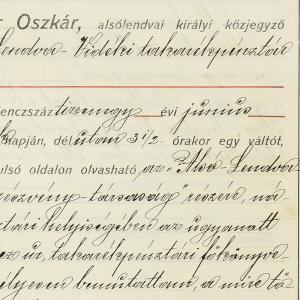 r Oszkár, alsólendvai királyi közjegyző
Lendva-Vidéki takarékpénztár
lenczszáz tizenegy évi junius
napján, délután 3 1/2 órakor egy váltót,
ulsó oldalon olvasható, az "Alsó-Lendva
részvény társaság" részére, ná-
tári helyiségében az ugyanott
ez ur, takarékpénztári főkönyve-
élyesen bemutattam, a mire tő-